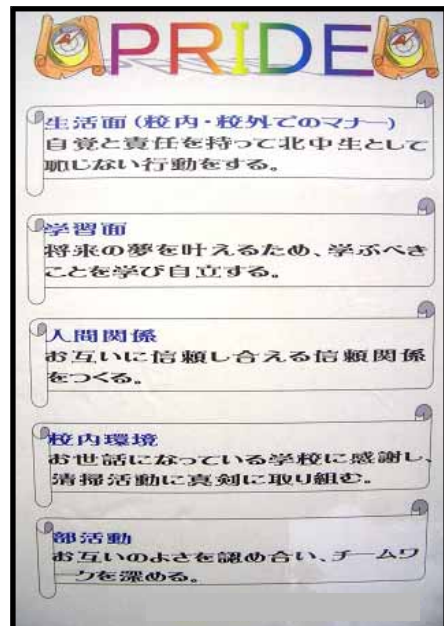 PRIDE
生活面(校内・校外でのマナー)
自覚と責任を持って北中生として
恥じない行動をする。
学習面
将来の夢を叶えるため、学ぶべき
ことを学び自立する。
人間関係
お互いに信頼し合える信頼関係
をつくる。
校内環境
お世話になっている学校に感謝し、
清掃活動に真剣に取り組む。
部活動
お互いのよさを認め合い、チームワ
ークを深める。